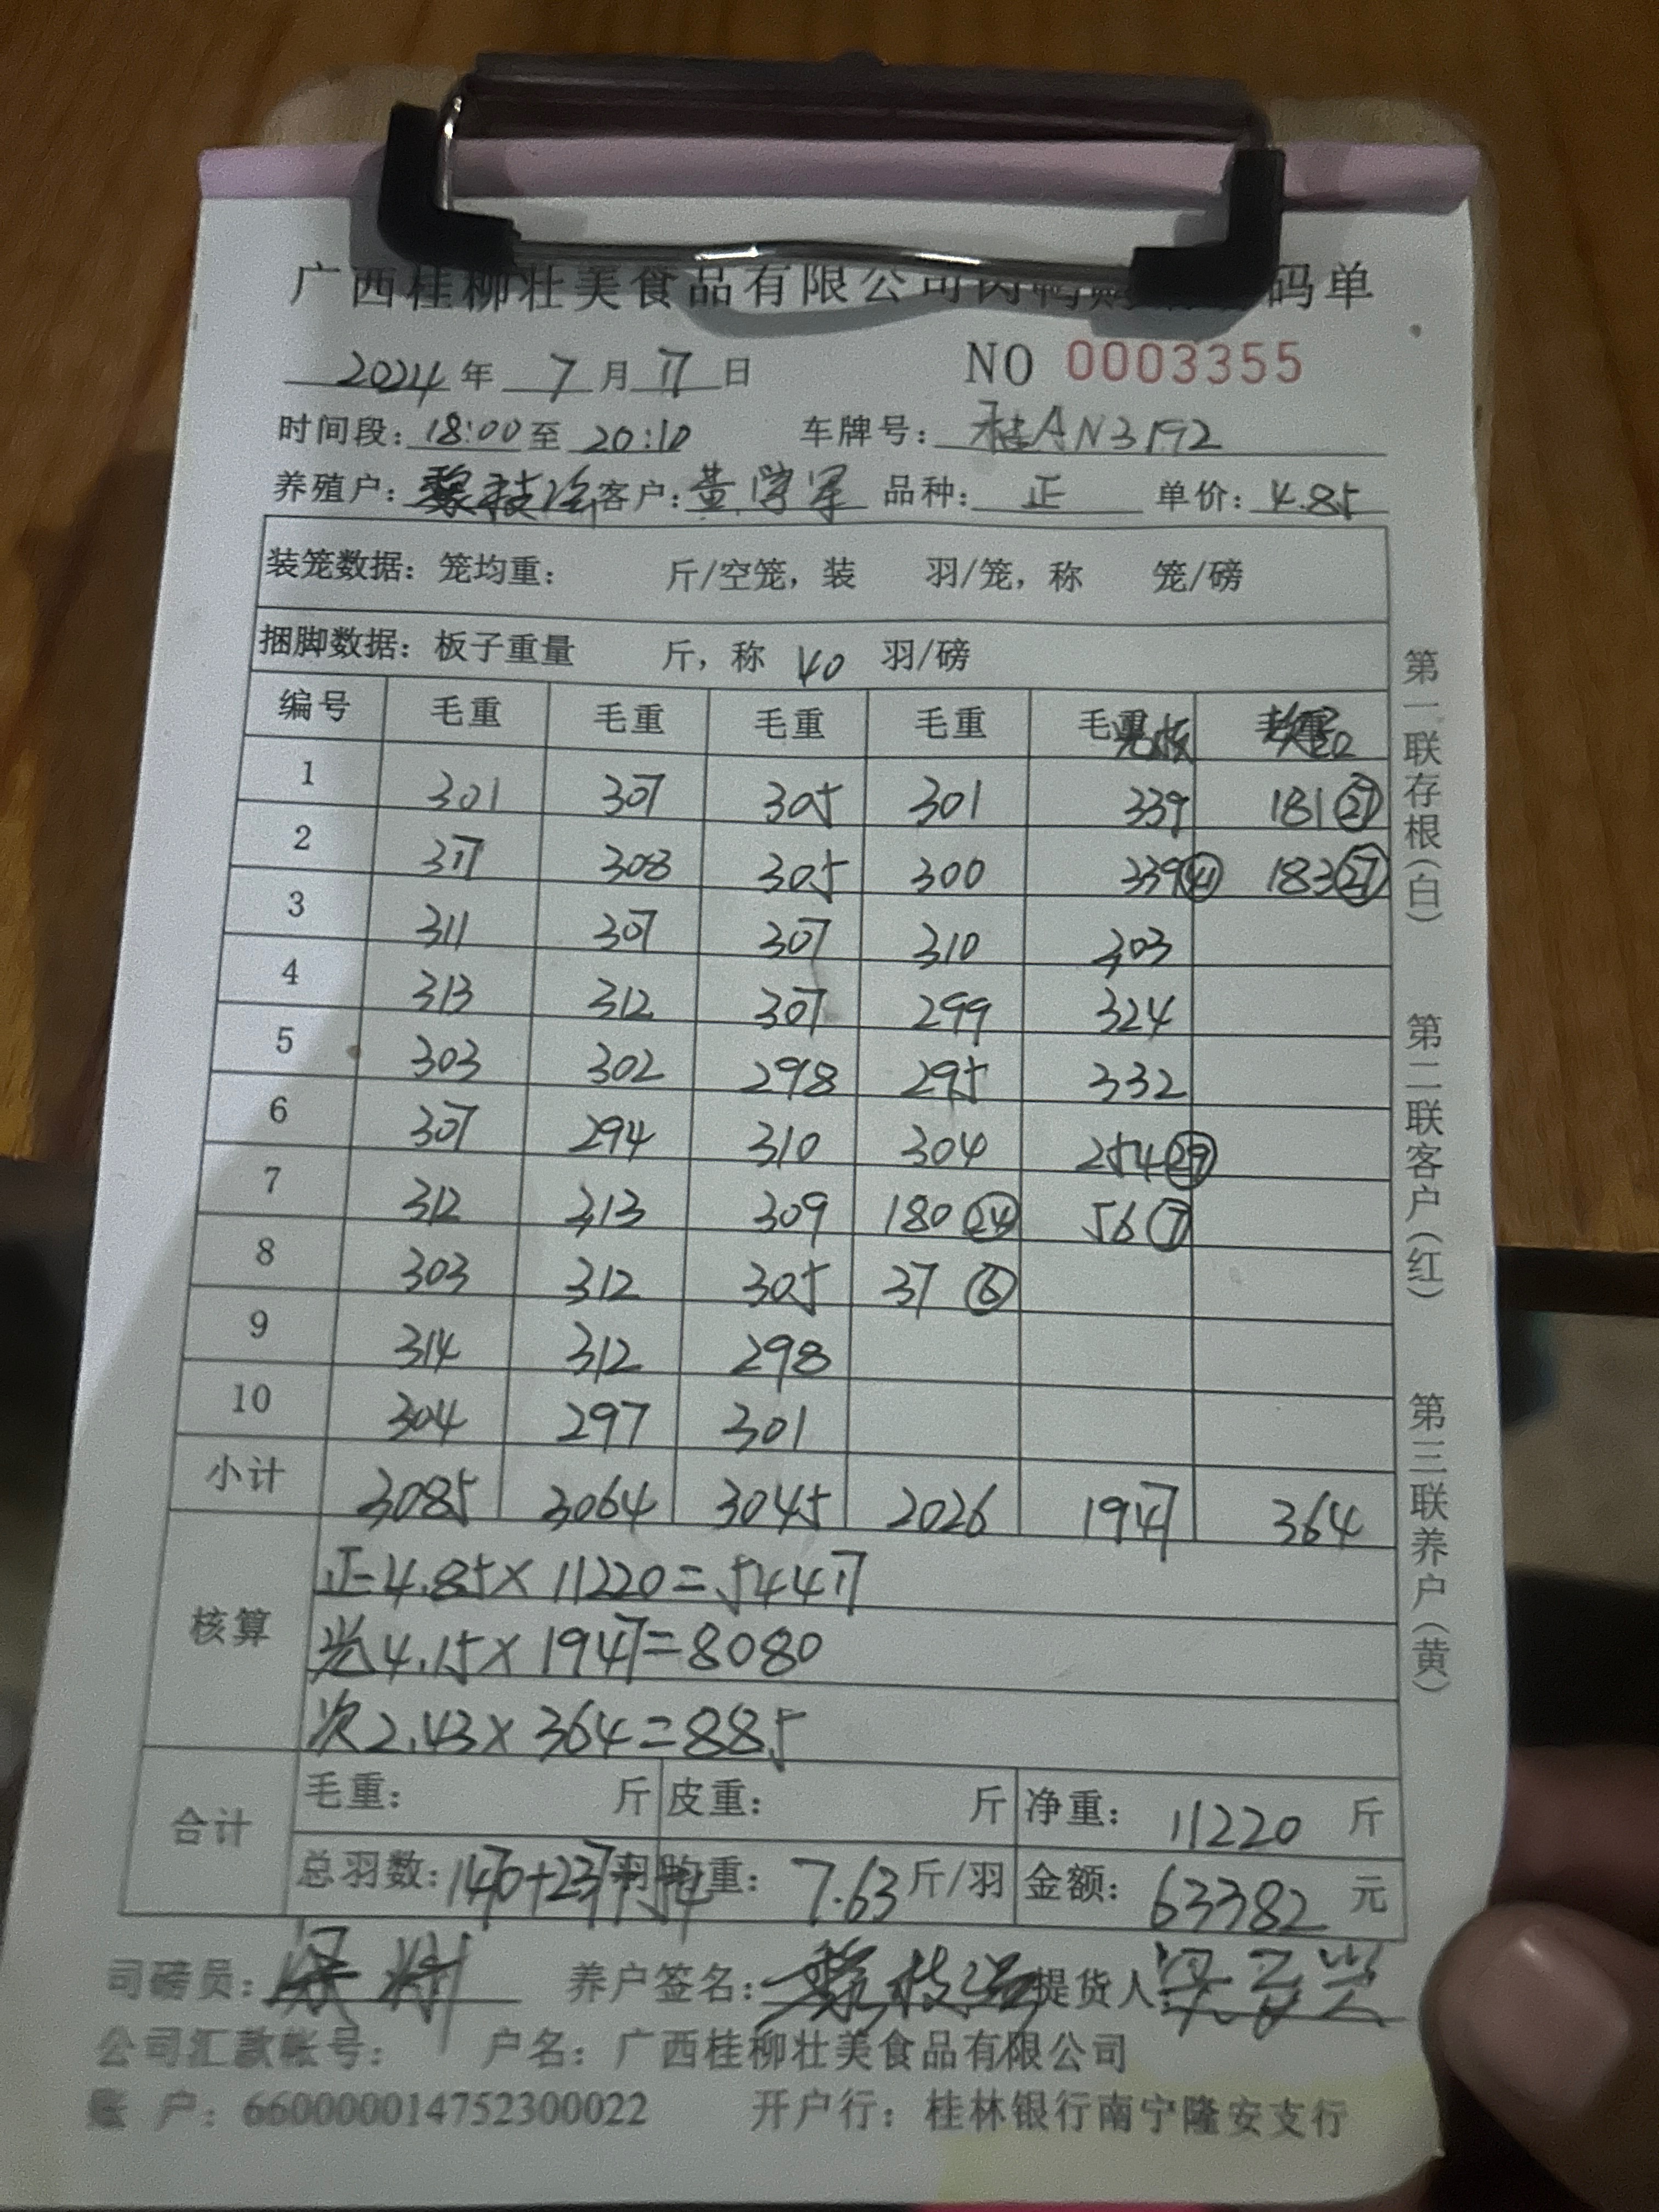 广西桂柳壮美食品有限公司肉鸭 码单
2024 年 7 月 17 日 NO 0003355
时间段: 18:00 至 20:10 车牌号: 桂AN3192
养殖户: 黎枝 客户: 黄学军 品种: 正 单价: 4.85
装笼数据: 笼均重: 斤/空笼, 装 羽/笼, 称 笼/磅
捆脚数据: 板子重量 斤, 称 40 羽/磅
编号 毛重 毛重 毛重 毛重 毛重 光板 毛重 次品
1 301 307 305 301 339 181 27
2 317 308 305 300 339 41 183 27
3 311 307 307 310 303
4 313 312 307 299 324
5 303 302 298 295 332
6 307 294 310 304 254 29
7 312 313 309 180 24 56 7
8 303 312 305 37 6
9 314 312 298
10 304 297 301
小计 3085 3064 3045 2026 1947 364
核算 正 4.85×11220=54417
光 4.15×1947=8080
次 2.43×364=885
合计 毛重: 斤 皮重: 斤 净重: 11220 斤
总羽数: 1470+237+54 羽 均重: 7.63 斤/羽 金额: 63382 元
司磅员: 养户签名: 黎枝 提货人
公司汇款帐号: 户名: 广西桂柳壮美食品有限公司
账 户: 660000014752300022 开户行: 桂林银行南宁隆安支行
第一联存根(白) 第二联客户(红) 第三联养户(黄)